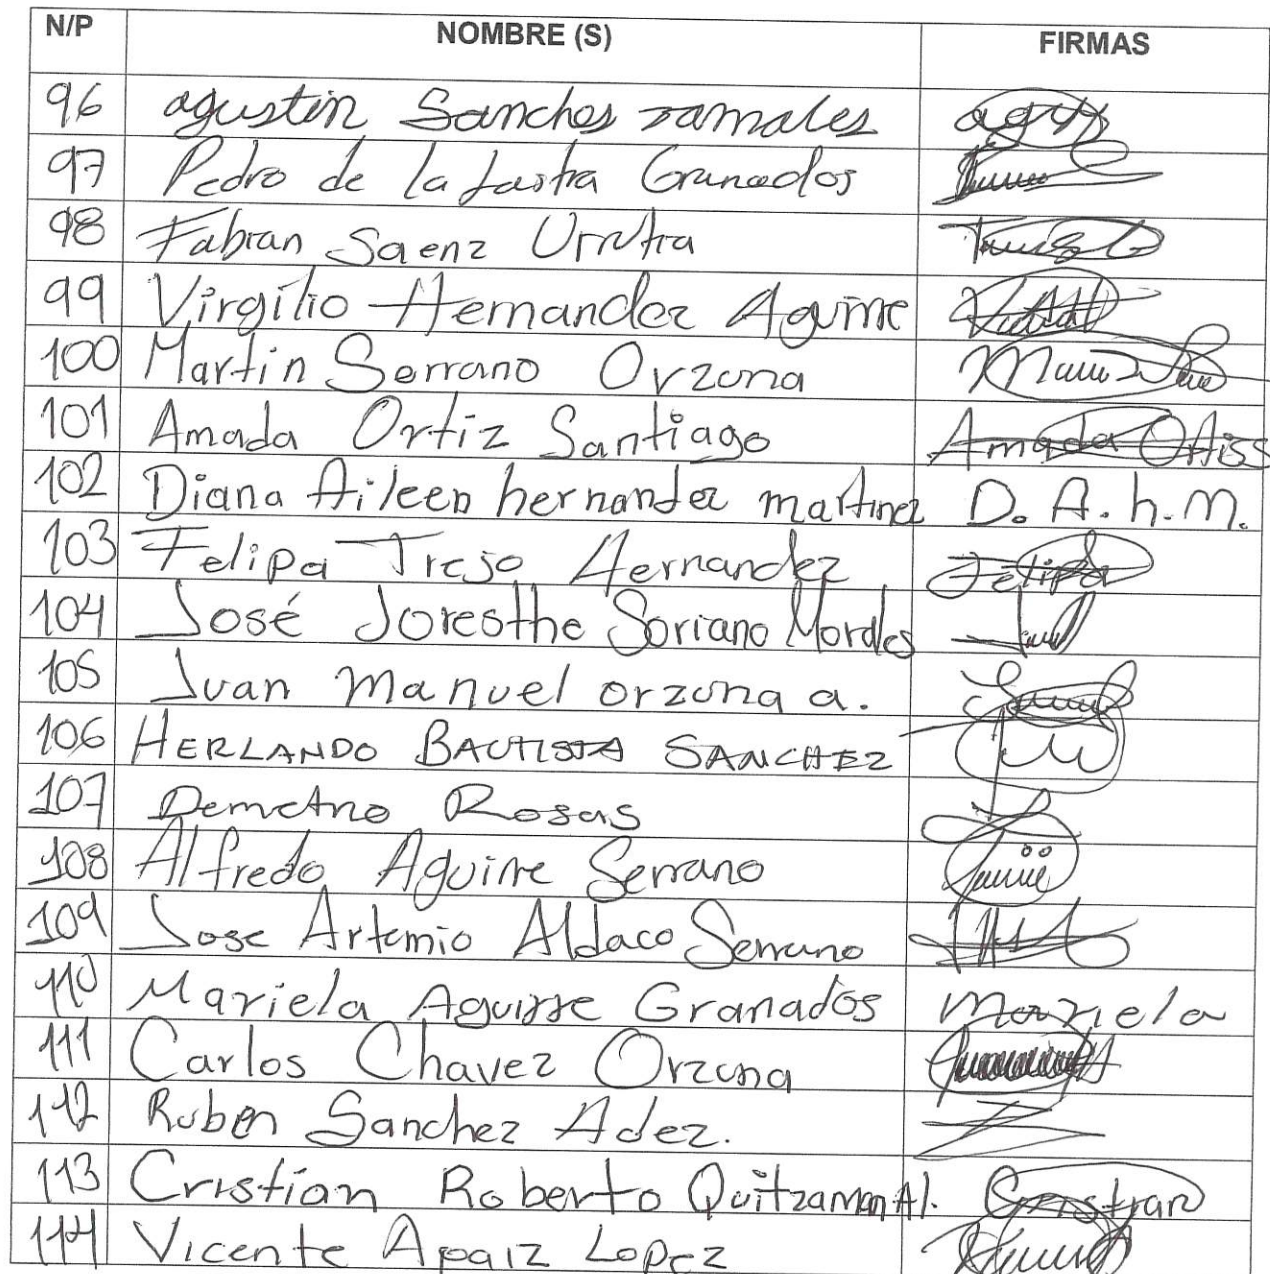 N/P NOMBRE (S) FIRMAS
96 agustin Sanches ramales
97 Pedro de la Lastra Granados
98 Fabian Saenz Urrutia
99 Virgilio Hernandez Aguirre
100 Martin Serrano Orzuna
101 Amada Ortiz Santiago Amada Ortiss
102 Diana Aileen hernandez martinez D. A. h. M.
103 Felipa Trejo Hernandez Felipa
104 José Joresthe Soriano Morales
105 Juan Manuel orzuna a.
106 HERLANDO BAUTISTA SANCHEZ
107 Demetrio Rosas
108 Alfredo Aguirre Serrano
109 Jose Artemio Aldaco Serrano
110 Mariela Aguirre Granados Mariela
111 Carlos Chavez Orzuna
112 Ruben Sanchez Adez.
113 Cristian Roberto Quitzaman Al. Cristian
114 Vicente Apaiz Lopez